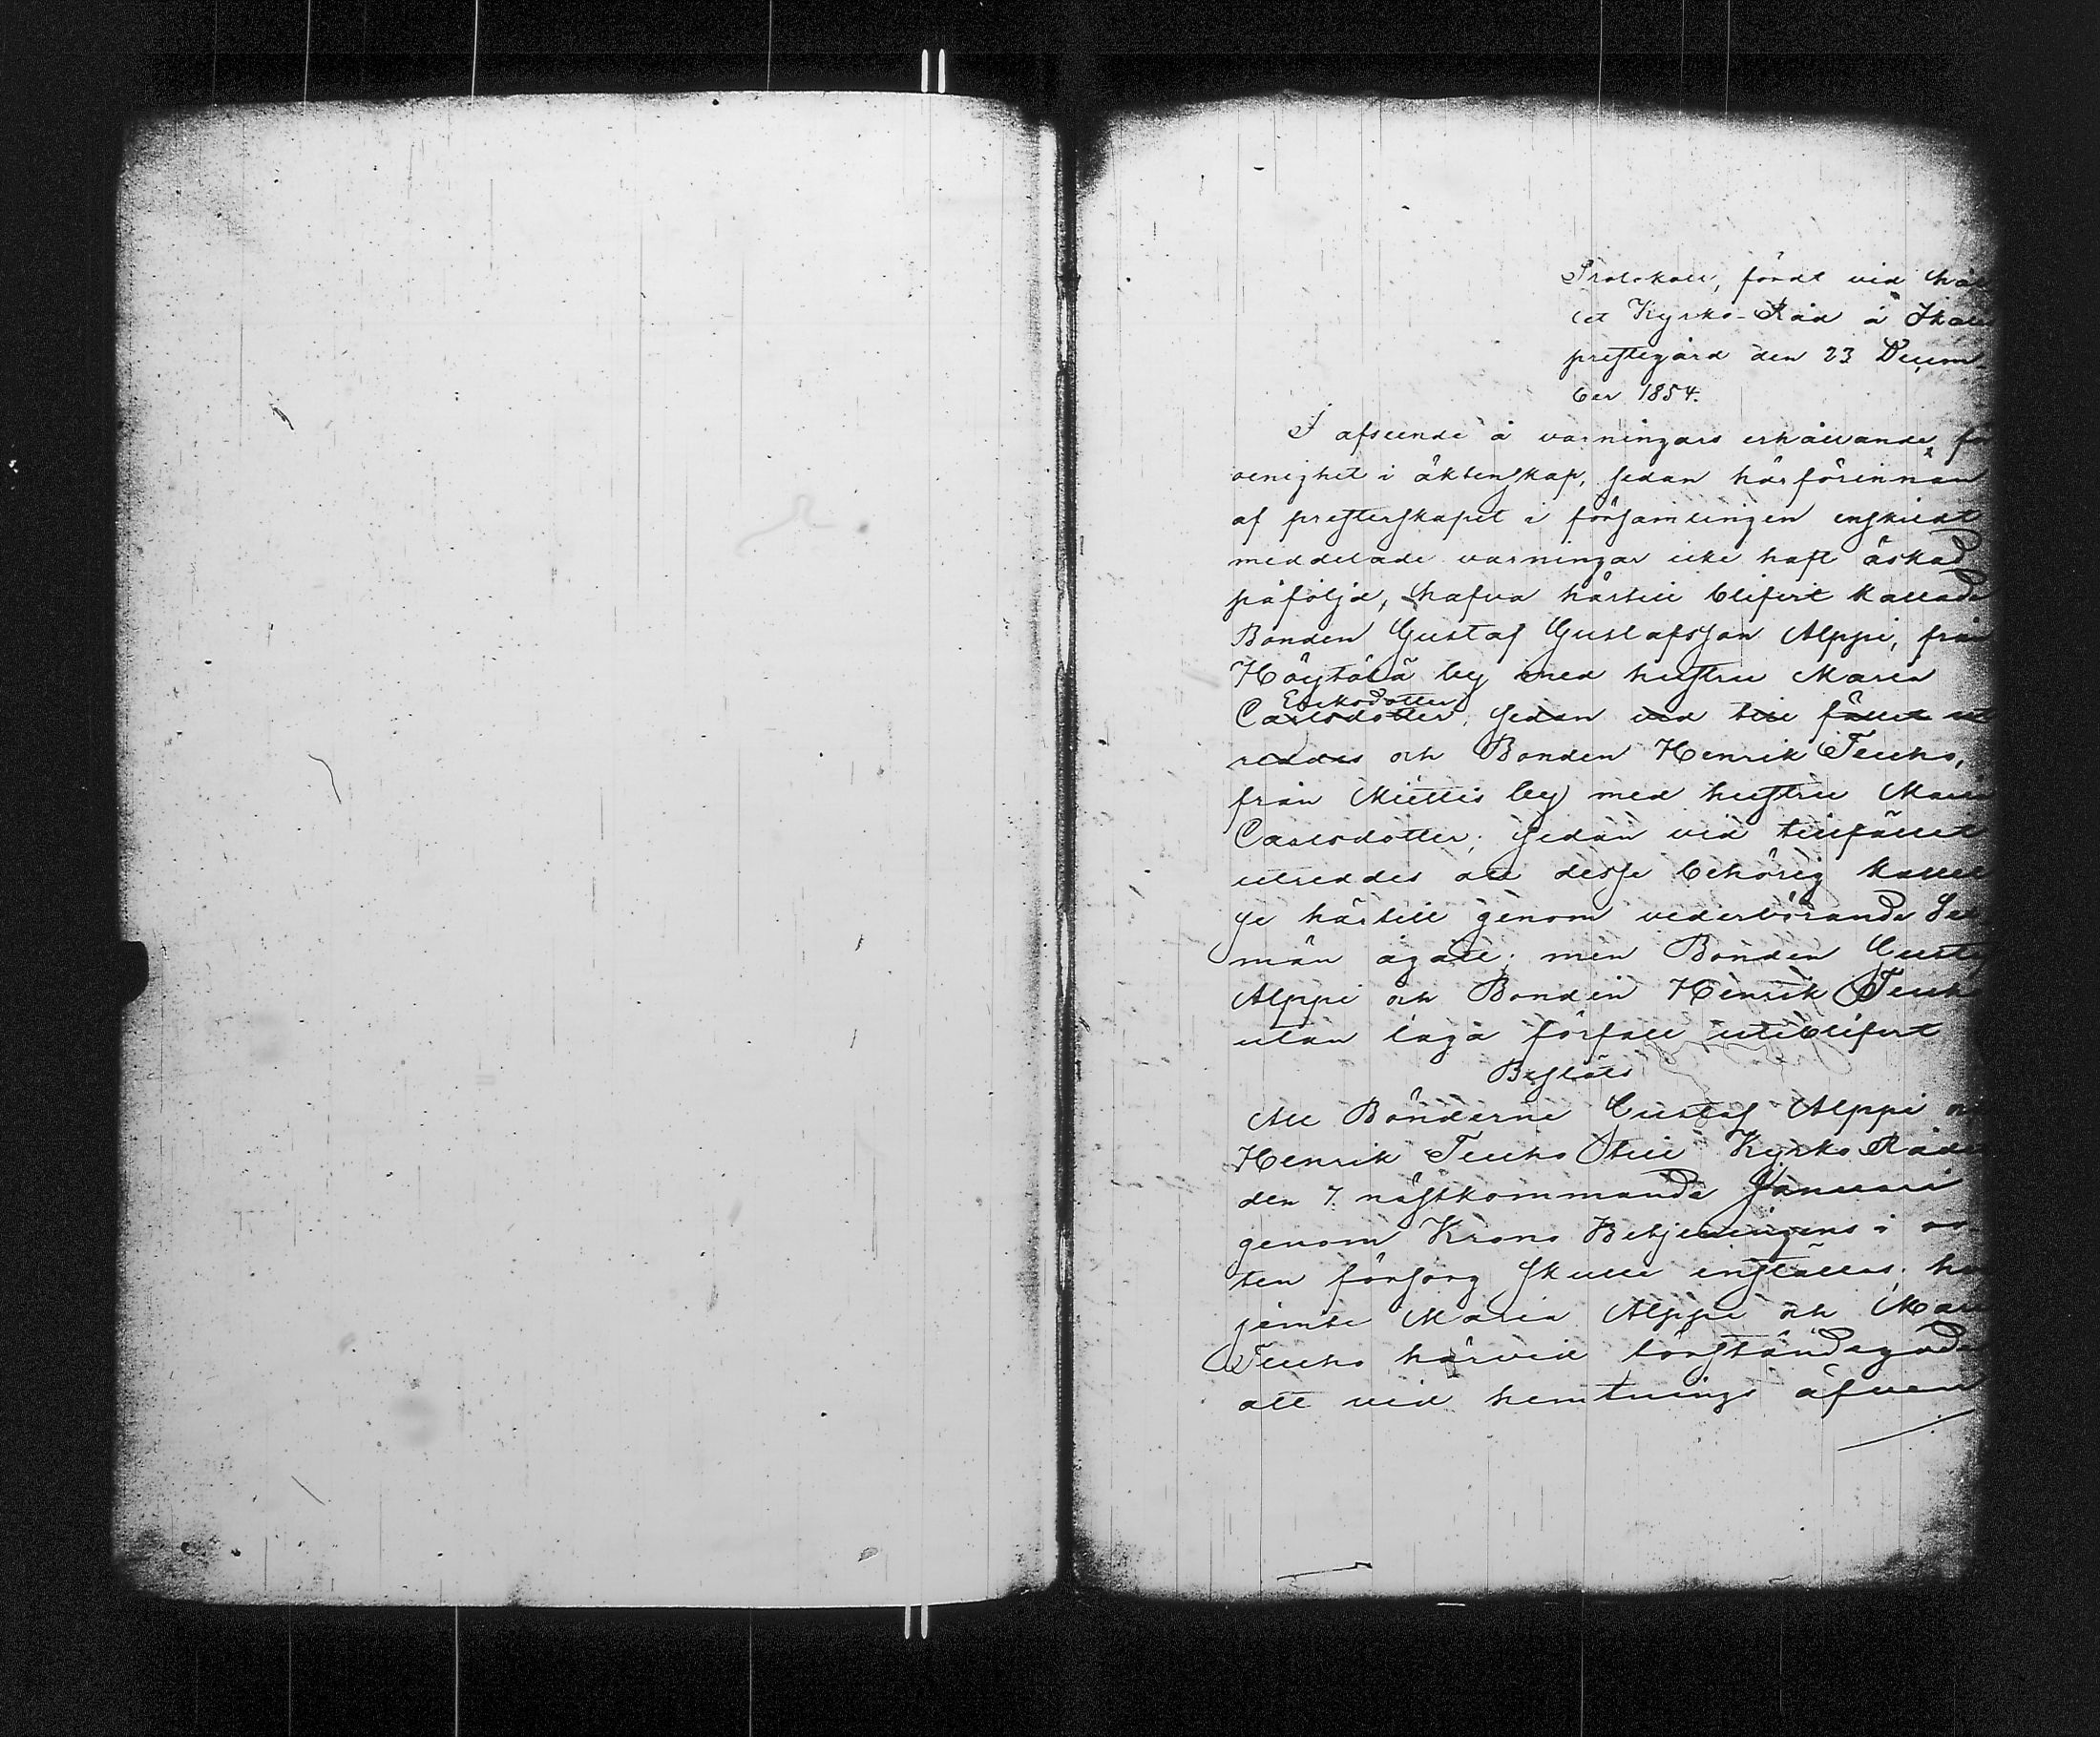 Protokoll, fördt vid hål
let Kyrko-Råd å Ikalis
prestegård den 23 Decem-
ber 1854.
I afseende å varningars erhållande, för
oenighet i äktenskap, sedan härförinnan
af presterskapet i församlingen enskildt
meddelade varningar icke haft åskad
påföljd, hafva härtill blifvit kallade
Bonden Gustaf Gustafsson Alppi, från
Höytölä by med hustru Maria
Eriksdotter
Carlsdotter, sedan vid till fället ut
reddes och Bonden Henrik Teuho,
från Miettis by med hustru Maria
Carlsdotter; sedan vid tillfället
utreddes att desse behörig kallel
se härtill genom vederbörande Sex
män ägatt; men Bonden Gustaf
Alppi och Bonden Henrik Teuho
utan laga förfall uteblifvit
Beslöts
Att Bönderne Gustaf Alppi och
Henrik Teuho till Kyrko Rådet
den 7. nästkommande Januari
genom Krono Betjeningens i or-
ten försorg skulle inställas; hvar
jemte Maria Alppi och Maria
Teuho härvid förständigades
att vid hemtnings äfven